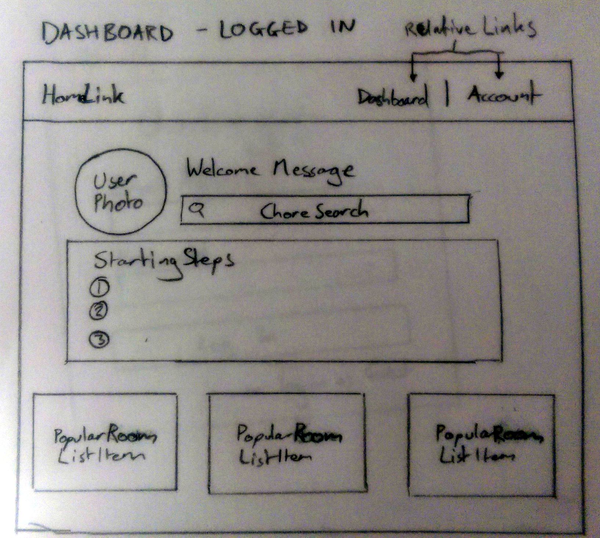 DASHBOARD - LOGGED IN
Relative Links
HomeLink
Dashboard | Account
User
Photo
Welcome Message
Chore Search
Starting Steps
1
2
3
Popular Room
List Item
Popular Room
List Item
Popular Room
List Item